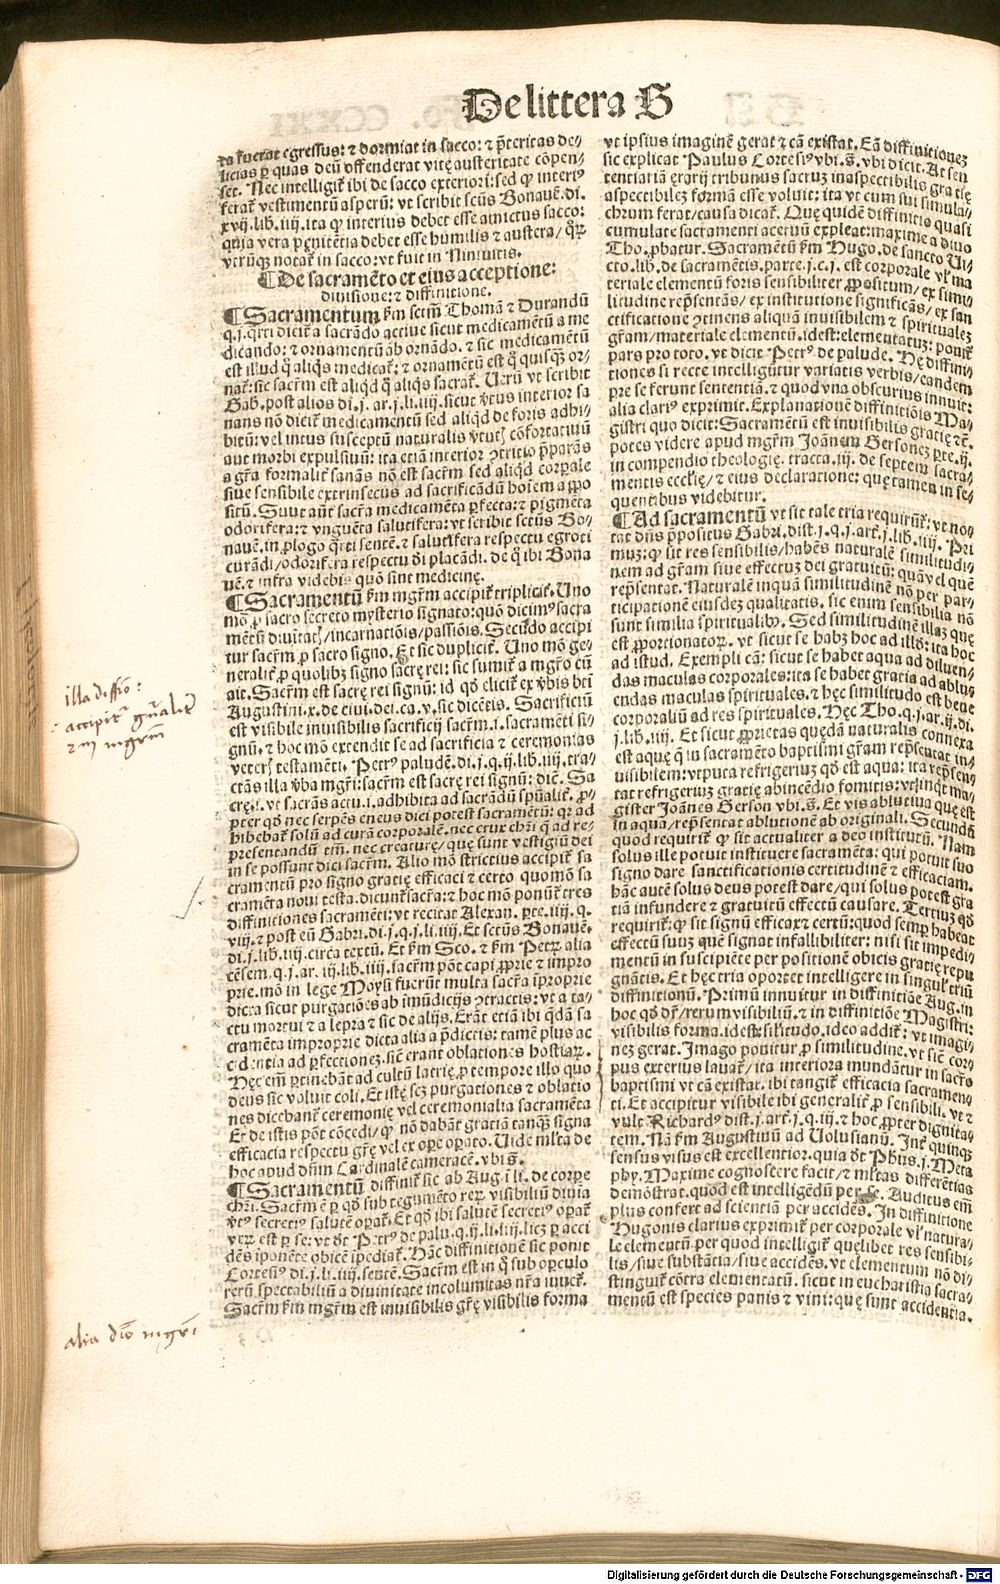 De littera S
ta fuerat egressus: ⁊ dormiat in sacco: ⁊ p̄teritas de-
licias ꝑ quas deū offenderat vitę austeritate cōpen-
set. Nec intelligit̄ ibi de sacco exteriori: sed ꝙ interiꝰ
ferat̄ vestimentū asperū: vt scribit sctūs Bonauē. di.
xvij. lib. iiij. ita ꝙ interius debet esse amictus sacco:
quia vera pęnitētia debet esse humilis ⁊ austera/
vtrūqꝫ notat̄ in sacco: vt fuit in Niniuitis.
¶ De sacramēto et eius acceptione:
diuisione: ⁊ diffinitione.
¶ Sacramentum ẜm sctm̄ Thomā ⁊ Durandū
q. j. q̄rti dicit̄ a sacrādo actiue sicut medicamētū a me
dicando: ⁊ ornamentū ab ornādo. ⁊ sic medicamētū
est illud q̄ aliqͥs medicat̄: ⁊ ornamētū est q̄ quisqꝫ or-
nat̄: sic sacr̄m est aliqd̄ q̄ aliqͥs sacrat̄. Uerū vt scribit
Gab. post alios di. j. ar. j. li. iiij. sicut v̄tus interior sa
nans nō dicit̄ medicamentū sed aliqd̄ de foris adhi-
bitū: vel intus susceptū naturalis v̄tutꝭ cōfortatiuū
aut morbi expulsiuū: ita etiā interior ꝯtritio p̄parās
a gr̄a formalit̄ sanās nō est sacr̄m sed aliqd̄ corꝑale
siue sensibile extrinsecus ad sacrificādū hoīem a ꝓpo
sitū. Sunt aūt sacr̄a medicamēta ꝑfecta: ⁊ pigmēta
odorifera: ⁊ vnguēta salutifera: vt scribit sctūs Bo-
nauē. in ꝓlogo q̄rti sentē. ⁊ salutifera respectu egroti
curādi/odorifera respectu dī placādi. de q̄ ibi Bona
uē. ⁊ infra videbis quō sint medicinę.
¶ Sacramentū ẜm mgr̄m accipit̄ triplicit̄. Uno
mō ꝓ sacro secreto mysterio signato: quō dicimꝰ sacra
mētū diuītatꝭ/incarnatiōis/passiōis. Secūdo accipi
tur sacr̄m ꝓ sacro signo. Et sic duplicit̄. Uno mō ge-
neralit̄ ꝓ quolibꝫ signo sacrę rei: sic sumit̄ a mgr̄o cū
ait. Sacr̄m est sacrę rei signū: id qd̄ elicit̄ ex v̄bis bti̅
Augustini. x. de ciui. dei. ca. v. sic dicētis. Sacrificiū
est visibile inuisibilis sacrificij sacr̄m. i. sacramēti si-
gnū. ⁊ hoc mō extendit se ad sacrificia ⁊ ceremonias
veterꝭ testamēti. Petrꝰ paludē. di. j. q. ij. lib. iiij. tra-
ctās illa v̄ba mgr̄i: sacr̄m est sacrę rei signū: dic̄. Sa
crę. i. vt sacrās actu. i. adhibita ad sacrādū spūalit̄. ꝓ-
pter qd̄ nec serpēs eneus dici potest sacramētū: qꝛ ad
hibebat̄ solū ad curā corporalē. nec crux chr̄i q̄ ad re-
presentandū tm̄. nec creaturę/quę sunt vestigiū dei
in se possunt dici sacr̄m. Alio mō strictius accipit̄ sa
cramentū pro signo gratię efficaci ⁊ certo quomō sa
cramēta noui testa. dicunt̄ sacr̄a: ⁊ hoc mō ponūt̄ tres
diffinitiones sacramēti: vt recitat Alexan. ꝑte. iiij. q.
viij. ⁊ post eū Gabri. di. j. q. j. li. iiij. Et sctūs Bonauē.
di. j. lib. iiij. circa textū. Et ẜm Sco. ⁊ ẜm Petrꝫ alia
cēsem. q. j. ar. iij. lib. iiij. sacr̄m pōt capi ꝓprie ⁊ impro
prie. mō in lege Moysi fuerūt multa sacr̄a īproprie
dicta sicut purgatiōes ab imūdicijs ꝯtractis: vt a ta-
ctu mortui ⁊ a lepra ⁊ sic de alijs. Erāt etiā ibi qd̄ā sa
cramēta improprie dicta alia a p̄dictis: tamē plus ac
cedentia ad ꝑfectionez. sic̄ erant oblationes hostiaꝝ.
Hęc em̄ ꝑtinebāt ad cultū latrię. ꝓ tempore illo quo
deus sic voluit coli. Et istę scꝫ purgationes ⁊ oblatio
nes dicebant̄ ceremonię vel ceremonialia sacramēta
Et de istis pōt cōcedi/ꝙ nō dabāt gratiā tanqꝫ signa
efficacia respectu gr̄ę vel ex oꝑe oꝑato. Uide ml̄ta de
hoc apud dn̄m Cardinalē cameracē. vbi s̄.
¶ Sacramentū diffinit̄ sic ab Aug. i li. de corꝑe
chr̄i. Sacr̄m ē ꝑ qd̄ sub tegumēto reꝝ visibiliū diuīa
v̄tꝰ secretiꝰ salutē oꝑat̄. Et qd̄ ibi salutē secretiꝰ oꝑat̄
veꝝ est ꝑ se: vt dt̄ Petrꝰ de palu. q. ij. li. iiij. licꝫ ꝑ acci
dēs iponēte obicē ipediat̄. Hāc diffinitionē sic ponit
Cortesiꝰ di. j. li. iiij. sentē. Sacr̄m est in q̄ sub oꝑculo
rerū spectabiliū a diuinitate incolumitas nr̄a iuuet̄.
Sacr̄m ẜm mgr̄m est inuisibilis gr̄ę visibilis forma
vt ipsius imaginē gerat ⁊ cā existat. Eā diffinitionez
sic explicat Paulus Cortesiꝰ vbi. s̄. vbi dicit. At sen
tentiariā egregij tribunus sacruꝫ inaspectibilis gratię
aspectibilez formā esse voluit: ita vt cum sui simula-
chrum ferat/causa dicat̄. Quę quidē diffinitio quasi
cumulate sacramenti aceruū expleat: maxime a diuo
Tho. ꝓbatur. Sacramētū ẜm Hugo. de sancto Ui-
cto. lib. de sacramētis. parte. j. c. j. est corporale vl̓ ma
teriale elementū foris sensibiliter ꝓpositum/ex simi-
litudine rep̄sentās/ex institutione significās/ex san
ctificatione ꝯtinens aliquā inuisibilem ⁊ spiritualez
gr̄am/materiale elementū. idest: elementatuꝫ: ponit̄
pars pro toto. vt dicit Petrꝰ de palude. Hę diffini-
tiones si recte intelligūtur variatis verbis/eandem
pre se ferunt sententiā. ⁊ quod vna obscurius innuit:
alia clariꝰ exprimit. Explanationē diffinitiōis Ma-
gistri quo dicit: Sacramētū est inuisibilis gratię ⁊c̄.
potes videre apud mgr̄m Joānem Gersonez ꝑte. ij.
in compendio theologię. tracta. iij. de septem sacra-
mentis ecclię/⁊ eius declaratione: quę tamen in se-
quentibus videbitur.
¶ Ad sacramentū vt sit tale tria requirūt̄: vt no-
tat dn̄s p̄positus Gabri. dist. j. q. j. art. j. lib. iiij. Pri
muꝫ: ꝙ sit res sensibilis/habēs naturalē similitudi-
nem ad gr̄am siue effectuꝫ dei gratuitū: quā vel quē
rep̄sentat. Naturalē inquā similitudinē nō per par-
ticipationē eiusdeꝫ qualitatis. sic enim sensibilia nō
sunt similia spiritualibꝫ. Sed similitudinē illaꝫ quę
est ꝓportionatoꝝ. vt sicut se habꝫ hoc ad illd̄: ita hoc
ad istud. Exempli cā: sicut se habet aqua ad diluen-
das maculas corporales: ita se habet gratia ad ablus
endas maculas spirituales. ⁊ hęc similitudo est bene
corporaliū ad res spirituales. Hęc Tho. q. j. ar. ij. di.
j. lib. iiij. Et sicut ꝓprietas quędā naturalis connexa
est aquę q̄ in sacramēto baptismi gr̄am rep̄sentat in-
uisibilem: vtputa refrigeriuꝫ qd̄ est aqua: ita rep̄sen-
tat refrigeriuꝫ gratię ab incēdio fomitis: vt inqͥt ma-
gister Joānes Gerson vbi. s̄. Et vis ablutiua quę est
in aqua/rep̄sentat ablutionē ab originali. Secundū
quod requirit̄ ꝙ sit actualiter a deo institutū. Nam
solus ille potuit instituere sacramēta: qui potuit suo
signo dare sanctificationis certitudinē ⁊ efficaciam.
hāc autē solus deus potest dare/qui solus potest gra
tiā infundere ⁊ gratuitū effectū causare. Tertiuꝫ qd̄
requirit̄: ꝙ sit signū efficax ⁊ certū: quod semꝑ habeat
effectū suuꝫ quē signat infallibiliter: nisi sit impedi-
mentū in suscipiēte per positionē obicis gratię repu
gnātis. Et hęc tria oportet intelligere in singulꝭ triū
diffinitionū. Primū innuitur in diffinitiōe Aug. in
hoc qd̄ dt̄/rerum visibiliū. ⁊ in diffinitiōe Magistri:
visibilis forma. idest: sil̓itudo. ideo addit̄: vt imagi-
neꝫ gerat. Imago ponitur ꝓ similitudine. vt sic̄ cor-
pus exterius lauat̄/ita interiora mundātur in sacro
baptismi vt cā existat. ibi tangit̄ efficacia sacramen-
ti. Et accipitur visibile ibi generalit̄ ꝓ sensibili. vt
vult Richardꝰ dist. j. art. j. q. iij. ⁊ hoc ꝓpter dignita-
tem. Nā ẜm Augustinū ad Uolusianū. Int̄ quinqꝫ
sensus visus est excellentior. quia dt̄ Phus. j. Meta
phy. Maxime cognoscere facit/⁊ ml̄tas differētias
demōstrat. quod est intelligēdū per se. Auditus em̄
plus confert ad scientiā per accidēs. In diffinitione
Hugonis clarius exprimit̄ per corporale vl̓ natura-
le elementū. per quod intelligit̄ quęlibet res sensibi-
lis/siue substātia/siue accidēs. vt elementum nō di-
stinguit̄ cōtra elementatū. sicut in eucharistia sacra-
mentū est species panis ⁊ vini: quę sunt accidentia.
illa diffio:
accipit̄ gn̄alit̄
mgr̄m
alia mgr̄i
Digitalisierung gefördert durch die Deutsche Forschungsgemeinschaft - DFG